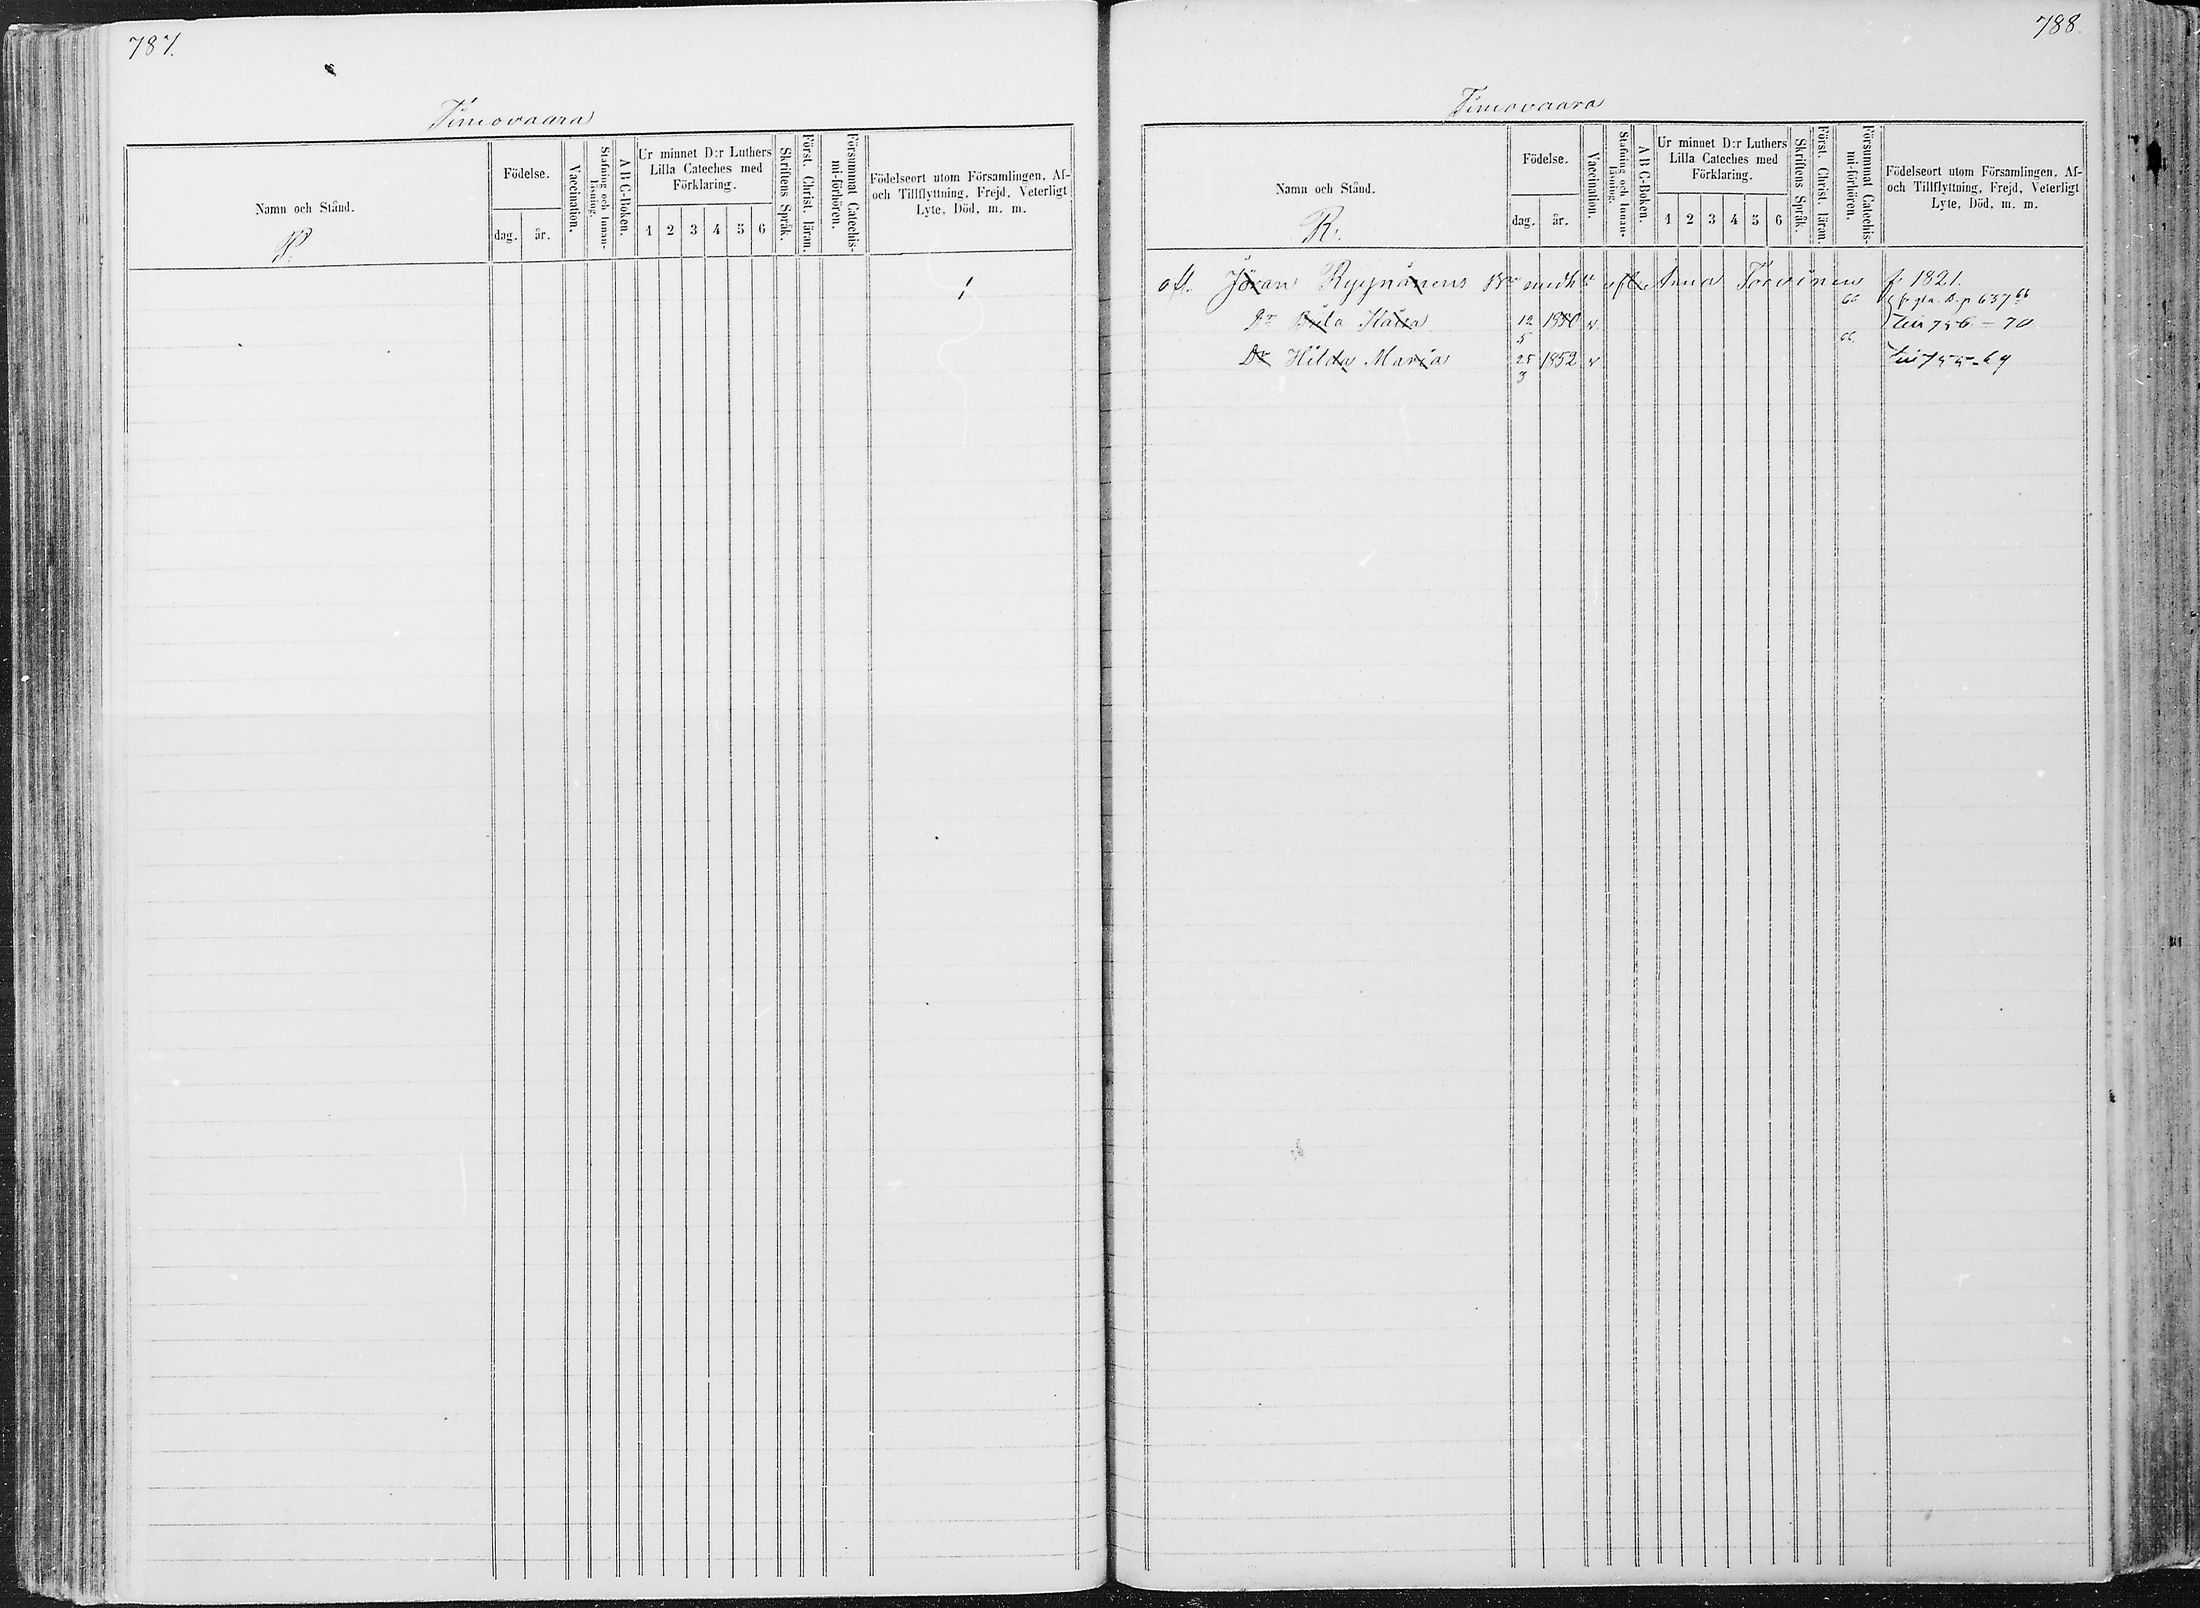 787.
Timovaara
Namn och Stånd.
P.
Födelse.
dag.
år.
Vaccination.
Stafning och Innan-
läsning.
A B C-Boken.
Ur minnet D:r Luthers
Lilla Cateches med
Förklaring.
1 2 3 4 5 6
Skriftens Språk.
Först. Christ. läran.
Försummat Catechis-
mi-förhören.
Födelseort utom Församlingen. Af-
och Tillflyttning, Frejd, Veterligt
Lyte, Död, m. m.
788.
Timovaara
Namn och Stånd.
R.
Födelse.
dag.
år.
Vaccination.
Stafning och Innan-
läsning.
A B C-Boken.
Ur minnet D:r Luthers
Lilla Cateches med
Förklaring.
1 2 3 4 5 6
Skriftens Språk.
Först. Christ. läran.
Försummat Catechis-
mi-förhören.
Födelseort utom Församlingen. Af-
och Tillflyttning, Frejd, Veterligt
Lyte, Död, m. m.
afl. Jöran Ryynänens afl. Anna Torvinen f. 1821.
66 p 637 66
Dr Brita Kaisa 12/5 1850 v. 66 756 - 70
Dr Hilda Maria 25/3 1852 v 755-69